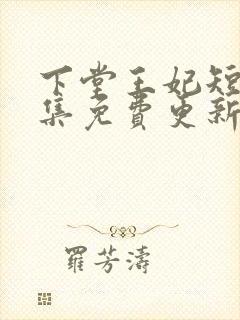 下堂王妃短
集免费更新
羅芳濤